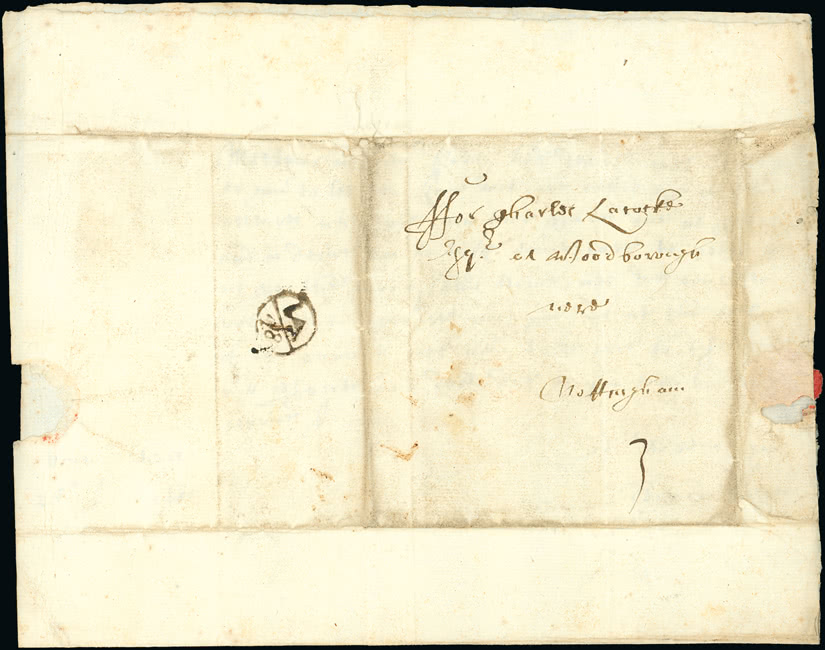 ffor Charles Lacocke
Esqr. at Woodborough
nere
Nottingham
3